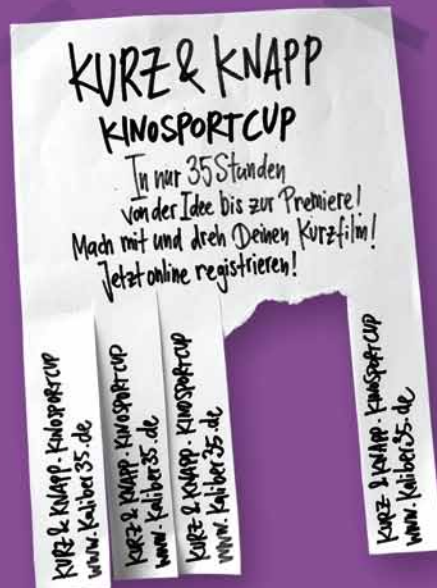 KURZ & KNAPP
KINOSPORTCUP
In nur 35 Stunden
von der Idee bis zur Premiere!
Mach mit und dreh Deinen Kurzfilm!
Jetzt online registrieren!
KURZ & KNAPP - KINOSPORTCUP
www.Kaliber35.de
KURZ & KNAPP - KINOSPORTCUP
www.Kaliber35.de
KURZ & KNAPP - KINOSPORTCUP
www.Kaliber35.de
KURZ & KNAPP - KINOSPORTCUP
www.Kaliber35.de